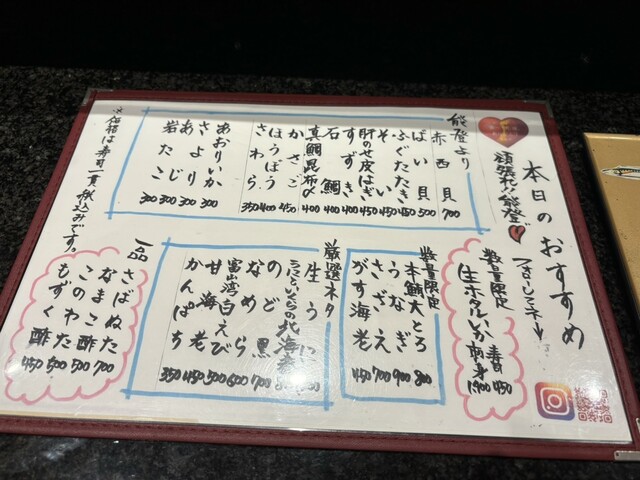 本日のおすすめ
頑張れ!!能登!!
フォローしてネ↓
能登より
赤西貝 700
ばい貝 500
ふぐたたき 450
そい 450
肝のせ皮はぎ 400
すずき 400
石鯛 400
真鯛昆布〆 400
かさご 450
ほうぼう 400
さわら 350
あおりいか 300
さより 300
あじ 300
岩たこ 300
※価格は寿司一貫税込みです。
数量限定
生ホタルいか 寿司 450
刺身 1900
数量限定
本鮪大とろ 800
うなぎ 900
さざえ 700
がす海老 450
厳選ネタ
生うに
のど黒 700
なめら 600
富山湾白えび 500
甘海老 450
かんぱち 350
一品
さばぬた 700
なまこ酢 500
このわた 500
もずく酢 450